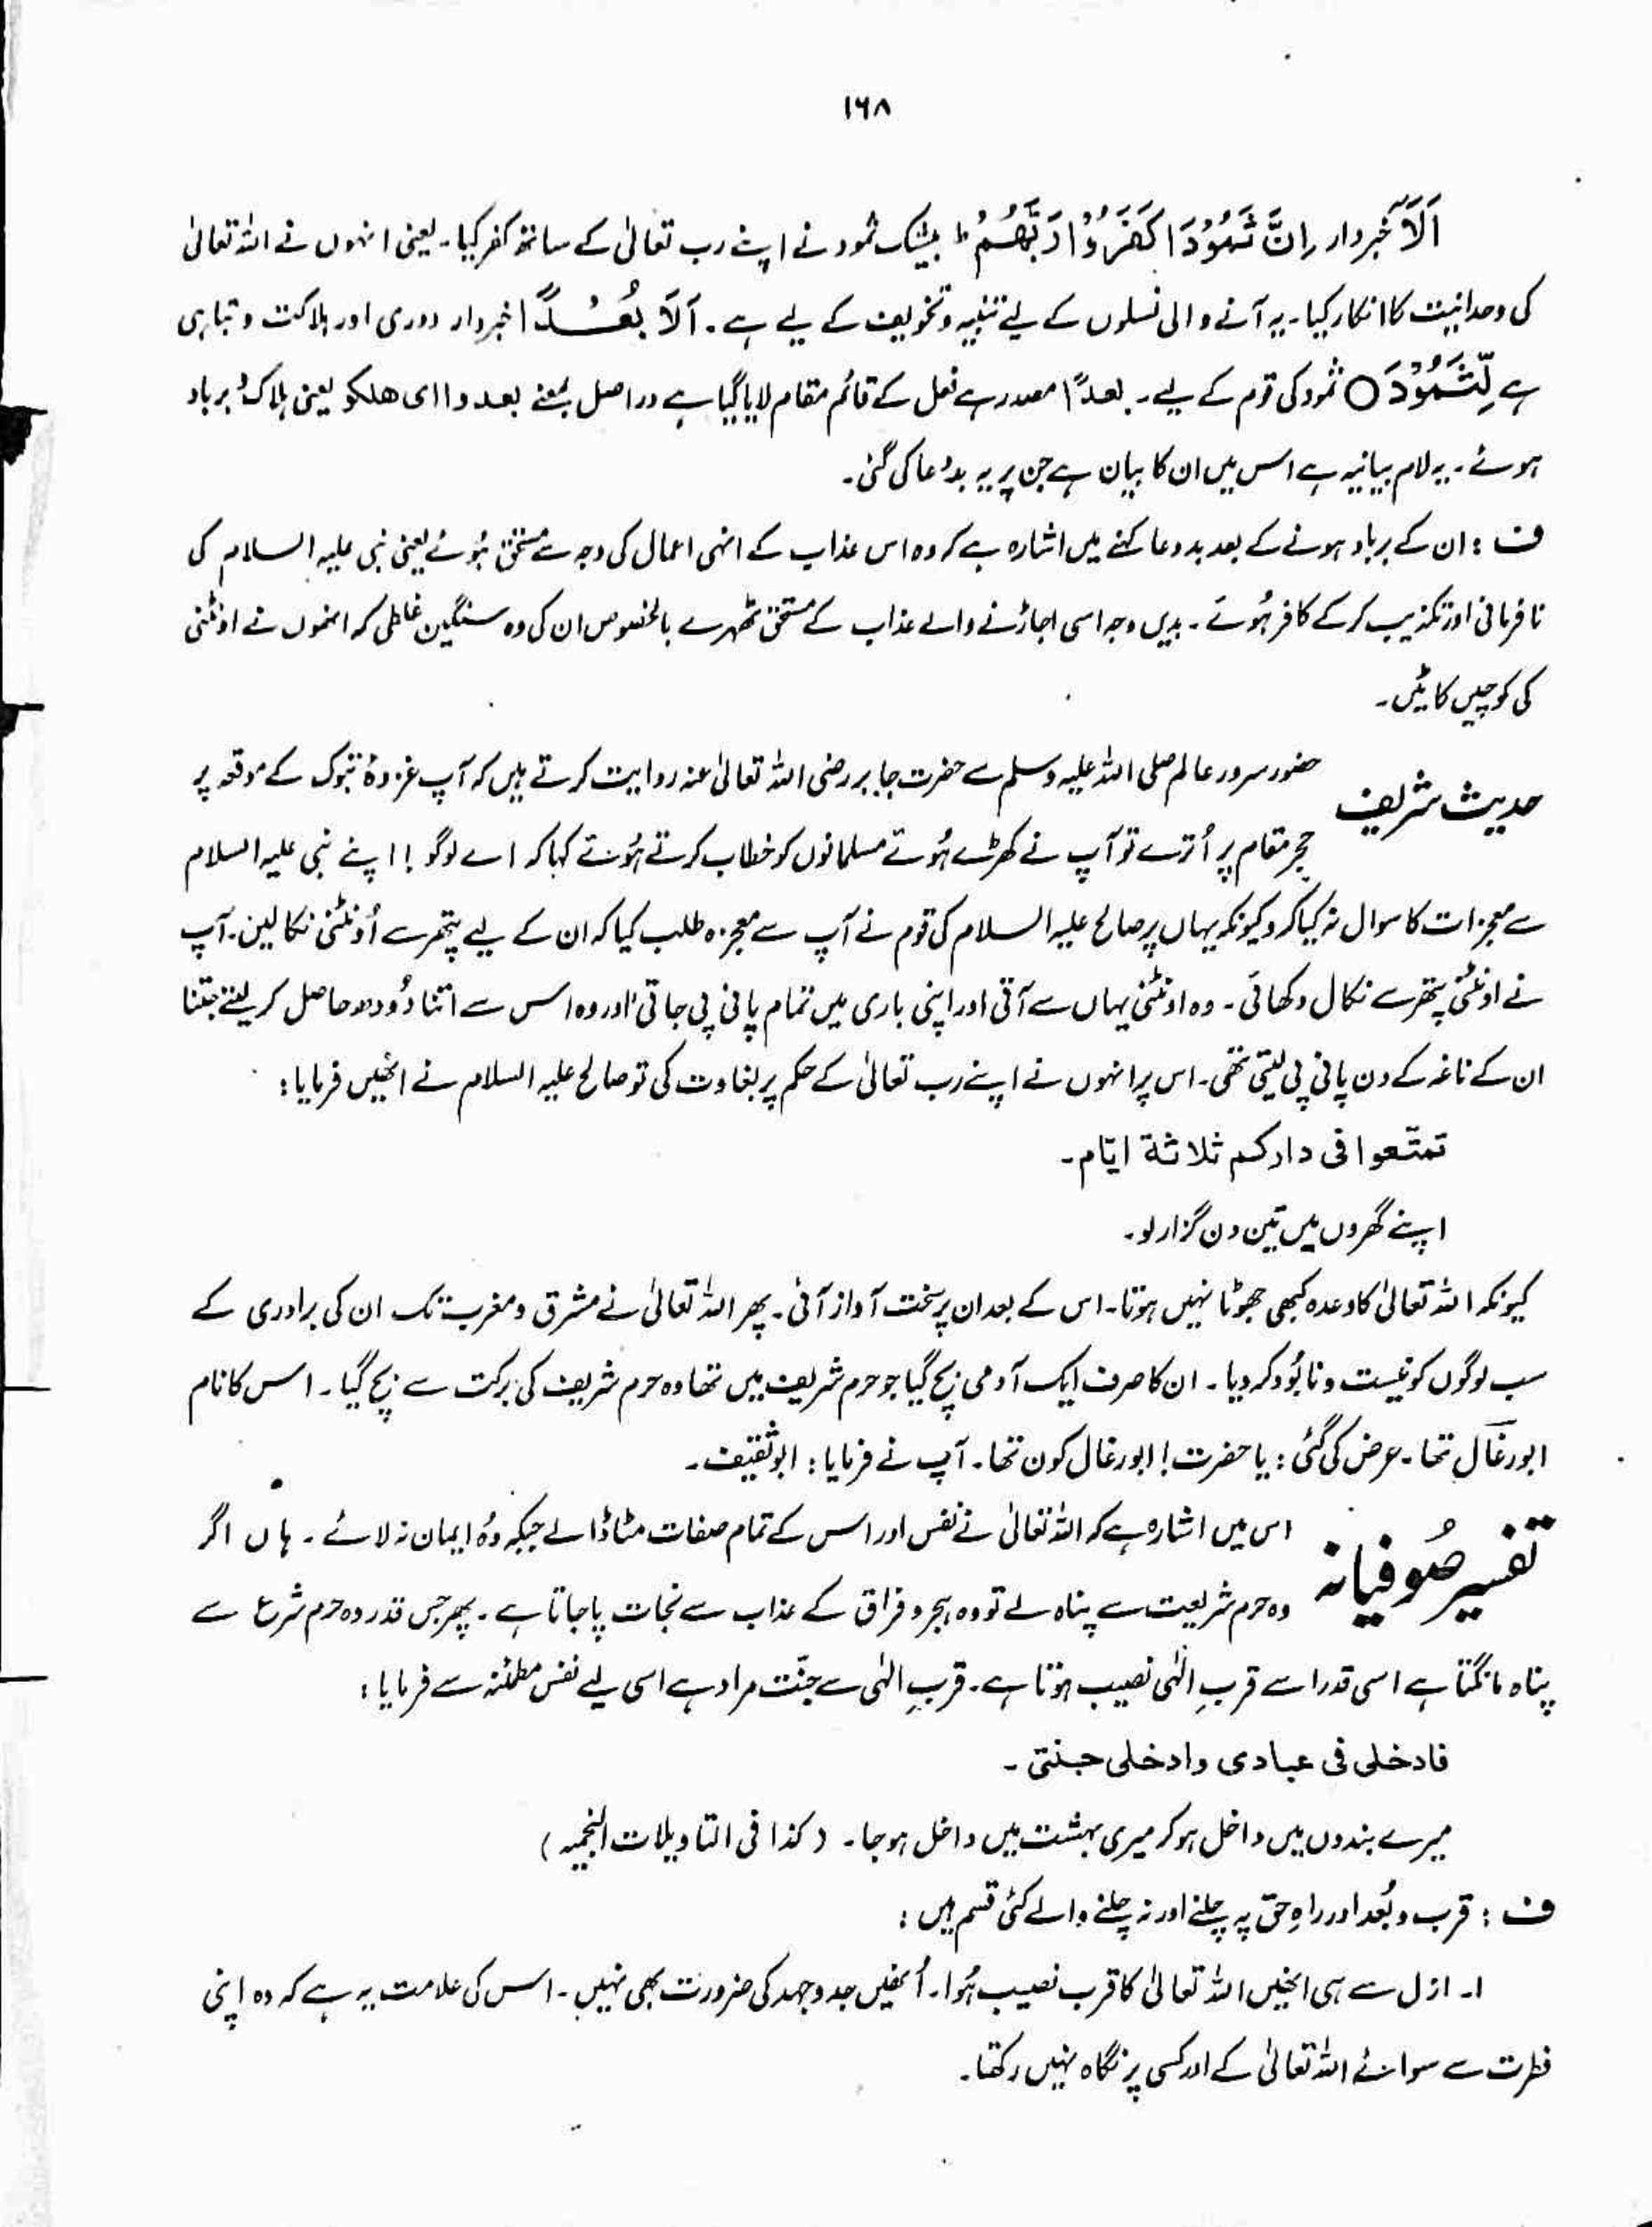 ۱۶۸
اَلَآ خبردار اِنَّ ثَمُوْدَا كَفَرُوْا رَبَّهُمْ ط بیشک ثمود نے اپنے رب تعالیٰ کے ساتھ کفر کیا۔ یعنی انہوں نے اللہ تعالیٰ
کی وحدانیت کا انکار کیا۔ یہ آنے والی نسلوں کے لیے تنبیہ و تخویف کے لیے ہے۔ اَلَا بُعْدًا خبردار دوری اور ہلاکت و تباہی
ہے لِّثَمُوْدَ ○ ثمود کی قوم کے لیے۔ بعدًا مصدر ہے فعل کے قائم مقام لایا گیا ہے دراصل بمعنے بعدوا ای ھلکو یعنی ہلاک و برباد
ہوئے۔ یہ لام بیانیہ ہے اس میں ان کا بیان ہے جن پر یہ بددُعا کی گئی۔
ف : ان کے برباد ہونے کے بعد بددعا کہنے میں اشارہ ہے کہ وہ اس عذاب کے انہی اعمال کی وجہ سے مستحق ہُوئے یعنی نبی علیہ السلام کی
نافرمانی اور تکذیب کر کے کافر ہُوئے۔ بدیں وجہ اسی اجاڑنے والے عذاب کے مستحق ٹھہرے بالخصوص ان کی وہ سنگین غلطی کہ انھوں نے اونٹنی
کی کوچیں کاٹیں۔
حدیث شریف حضور سرور عالم صلی اللہ علیہ وسلم سے حضرت جابر رضی اللہ تعالیٰ عنہ روایت کرتے ہیں کہ آپ غزوۂ تبوک کے موقعہ پر
حجر مقام پر اُترے تو آپ نے کھڑے ہُوئے مسلمانوں کو خطاب کرتے ہُوئے کہا کہ اے لوگو ! اپنے نبی علیہ السلام
سے معجزات کا سوال نہ کیا کرو کیونکہ یہاں پر صالح علیہ السلام کی قوم نے آپ سے معجزہ طلب کیا کہ ان کے لیے پتھر سے اُونٹنی نکالیں۔ آپ
نے اونٹنی پتھر سے نکال دکھائی۔ وہ اونٹنی یہاں سے آتی اور اپنی باری میں تمام پانی پی جاتی اور وہ اس سے اتنا دُودھ حاصل کر لیتے جتنا
ان کے ناغہ کے دن پانی پی لیتی تھی۔ اس پر انہوں نے اپنے رب تعالیٰ کے حکم پر بغاوت کی تو صالح علیہ السلام نے انھیں فرمایا :
تمتّعوا فی دارکم ثلاثة ایّام۔
اپنے گھروں میں تین دن گزار لو۔
کیونکہ اللہ تعالیٰ کا وعدہ کبھی جھوٹا نہیں ہوتا۔ اس کے بعد ان پر سخت آواز آئی۔ پھر اللہ تعالیٰ نے مشرق و مغرب تک ان کی برادری کے
سب لوگوں کو نیست و نابُود کر دیا۔ ان کا صرف ایک آدمی بچ گیا جو حرم شریف میں تھا وہ حرم شریف کی برکت سے بچ گیا۔ اس کا نام
ابورغال تھا۔ عرض کی گئی : یا حضرت ! ابورغال کون تھا۔ آپ نے فرمایا : ابوثقیف۔
تفسیر صُوفیانہ اس میں اشارہ ہے کہ اللہ تعالیٰ نے نفس اور اس کے تمام صفات مٹا ڈالے جبکہ وُہ ایمان نہ لائے۔ ہاں اگر
وہ حرم شریعت سے پناہ لے تو وہ ہجر و فراق کے عذاب سے نجات پا جاتا ہے۔ پھر جس قدر وہ حرم شرع سے
پناہ مانگتا ہے اسی قدر اسے قربِ الٰہی نصیب ہوتا ہے۔ قربِ الٰہی سے جنّت مراد ہے اسی لیے نفس مطمئنہ سے فرمایا :
فادخلی فی عبادی وادخلی جنتی۔
میرے بندوں میں داخل ہو کر میری بہشت میں داخل ہو جا۔ (کذا فی التاویلات النجمیہ)
ف : قرب و بُعد اور راہِ حق پہ چلنے اور نہ چلنے والے کئی قسم ہیں :
۱۔ ازل سے ہی انھیں اللہ تعالیٰ کا قرب نصیب ہُوا۔ اُنھیں جدوجہد کی ضرورت بھی نہیں۔ اس کی علامت یہ ہے کہ وہ اپنی
فطرت سے سوائے اللہ تعالیٰ کے اور کسی پر نگاہ نہیں رکھتا۔